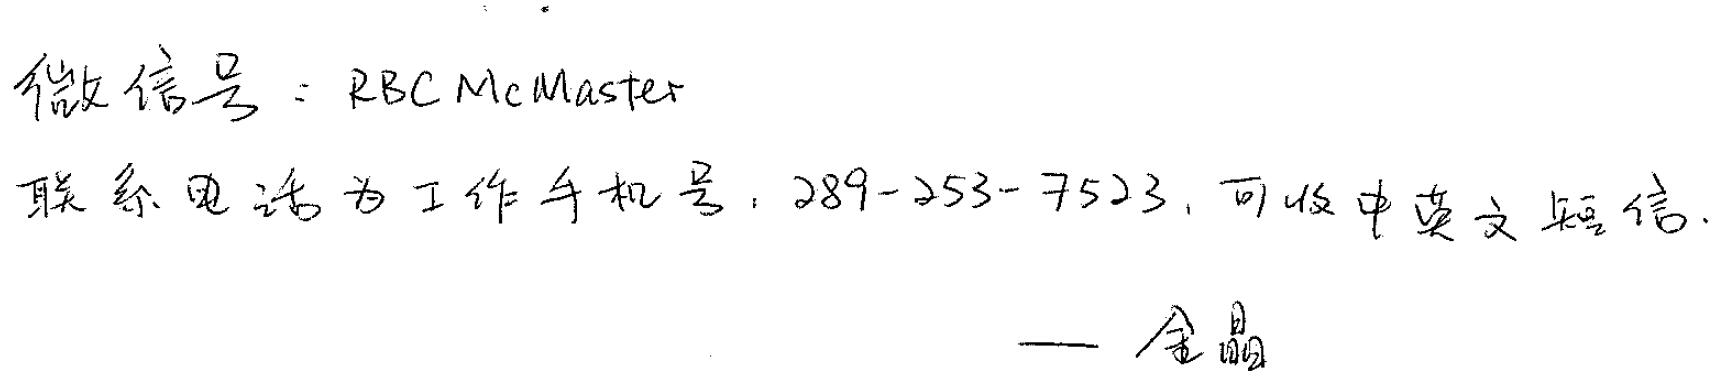 微信号：RBC McMaster
联系电话为工作手机号，289-253-7523，可收中英文短信.
— 金晶